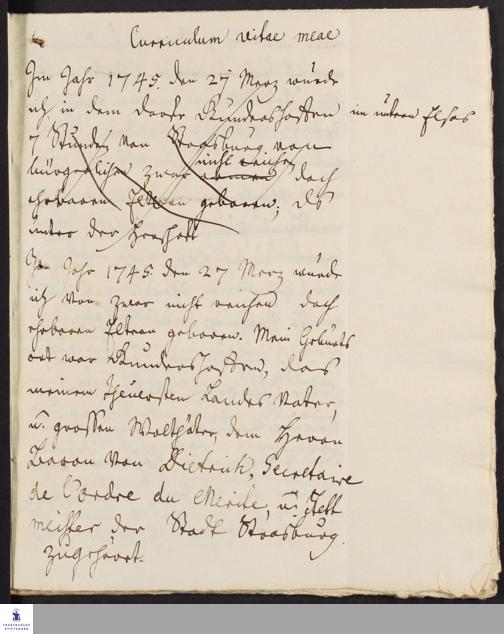 Curriculum vitae meae
Im Jahr 1745. den 27 Merz wurde
ich in dem Dorfe Kundershoffen im untern Elsas
7 Stunden von Strasburg von
nicht reichen
bürgerlichen zwar armen doch
ehrbaren Eltern geboren; das
unter der Herschaft
Im Jahr 1745. den 27 Merz wurde
ich von zwar nicht reichen doch
ehrbaren Eltern geboren. Mein Geburts
ort war Kundershoffen, das
meinem theuersten Landes Vater,
u. grossen Wolthäter, dem Herrn
Baron von Dietrich, Secretaire
de l'ordre du Merite, u. Stett
meister der Stadt Strasburg
zugehört.
FRANCKESCHE
STIFTUNGEN